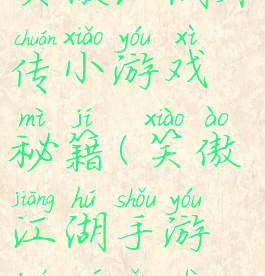 chuán xiǎo yóu xì
传小游戏
mì jí xiào ào
秘籍(笑傲
jiāng hú shǒu yóu
江湖手游